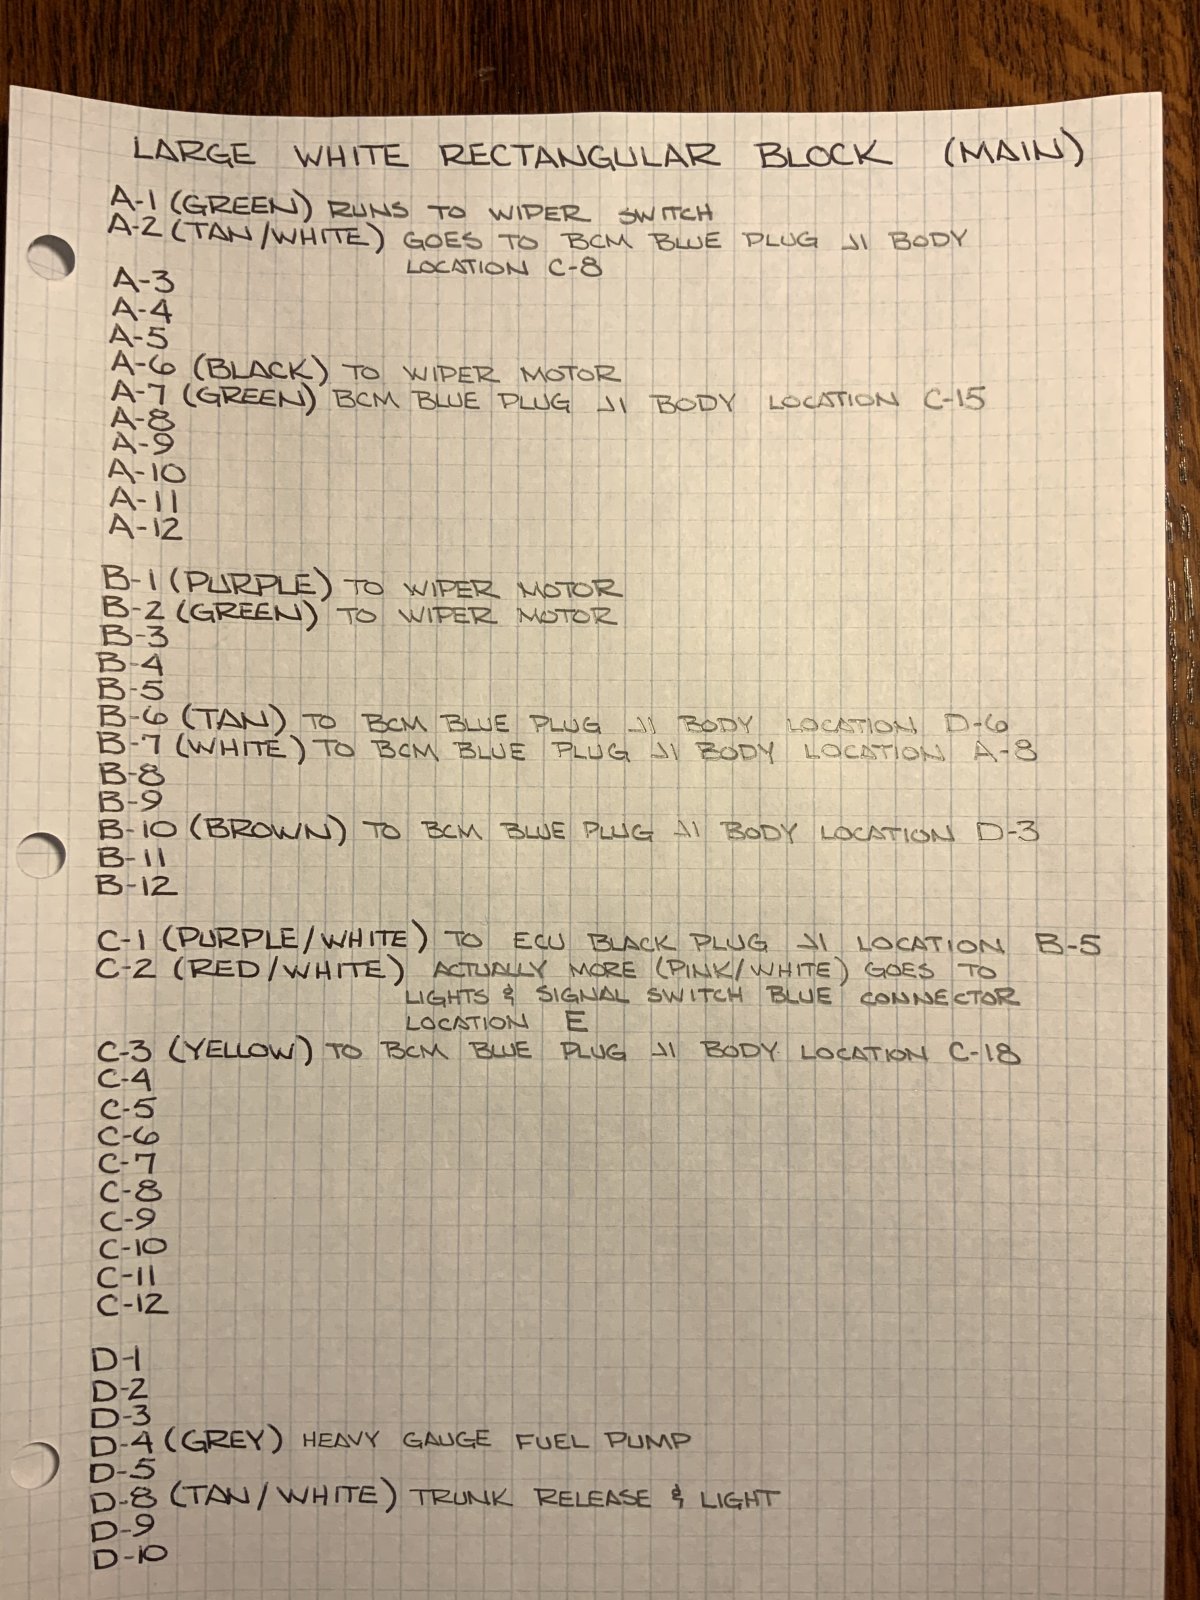 LARGE WHITE RECTANGULAR BLOCK (MAIN)
A-1 (GREEN) RUNS TO WIPER SWITCH
A-2 (TAN/WHITE) GOES TO BCM BLUE PLUG J1 BODY
LOCATION C-8
A-3
A-4
A-5
A-6 (BLACK) TO WIPER MOTOR
A-7 (GREEN) BCM BLUE PLUG J1 BODY LOCATION C-15
A-8
A-9
A-10
A-11
A-12
B-1 (PURPLE) TO WIPER MOTOR
B-2 (GREEN) TO WIPER MOTOR
B-3
B-4
B-5
B-6 (TAN) TO BCM BLUE PLUG J1 BODY LOCATION D-6
B-7 (WHITE) TO BCM BLUE PLUG J1 BODY LOCATION A-8
B-8
B-9
B-10 (BROWN) TO BCM BLUE PLUG J1 BODY LOCATION D-3
B-11
B-12
C-1 (PURPLE/WHITE) TO ECU BLACK PLUG J1 LOCATION B-5
C-2 (RED/WHITE) ACTUALLY MORE (PINK/WHITE) GOES TO
LIGHTS & SIGNAL SWITCH BLUE CONNECTOR
LOCATION E
C-3 (YELLOW) TO BCM BLUE PLUG J1 BODY LOCATION C-18
C-4
C-5
C-6
C-7
C-8
C-9
C-10
C-11
C-12
D-1
D-2
D-3
D-4 (GREY) HEAVY GAUGE FUEL PUMP
D-5
D-8 (TAN/WHITE) TRUNK RELEASE & LIGHT
D-9
D-10